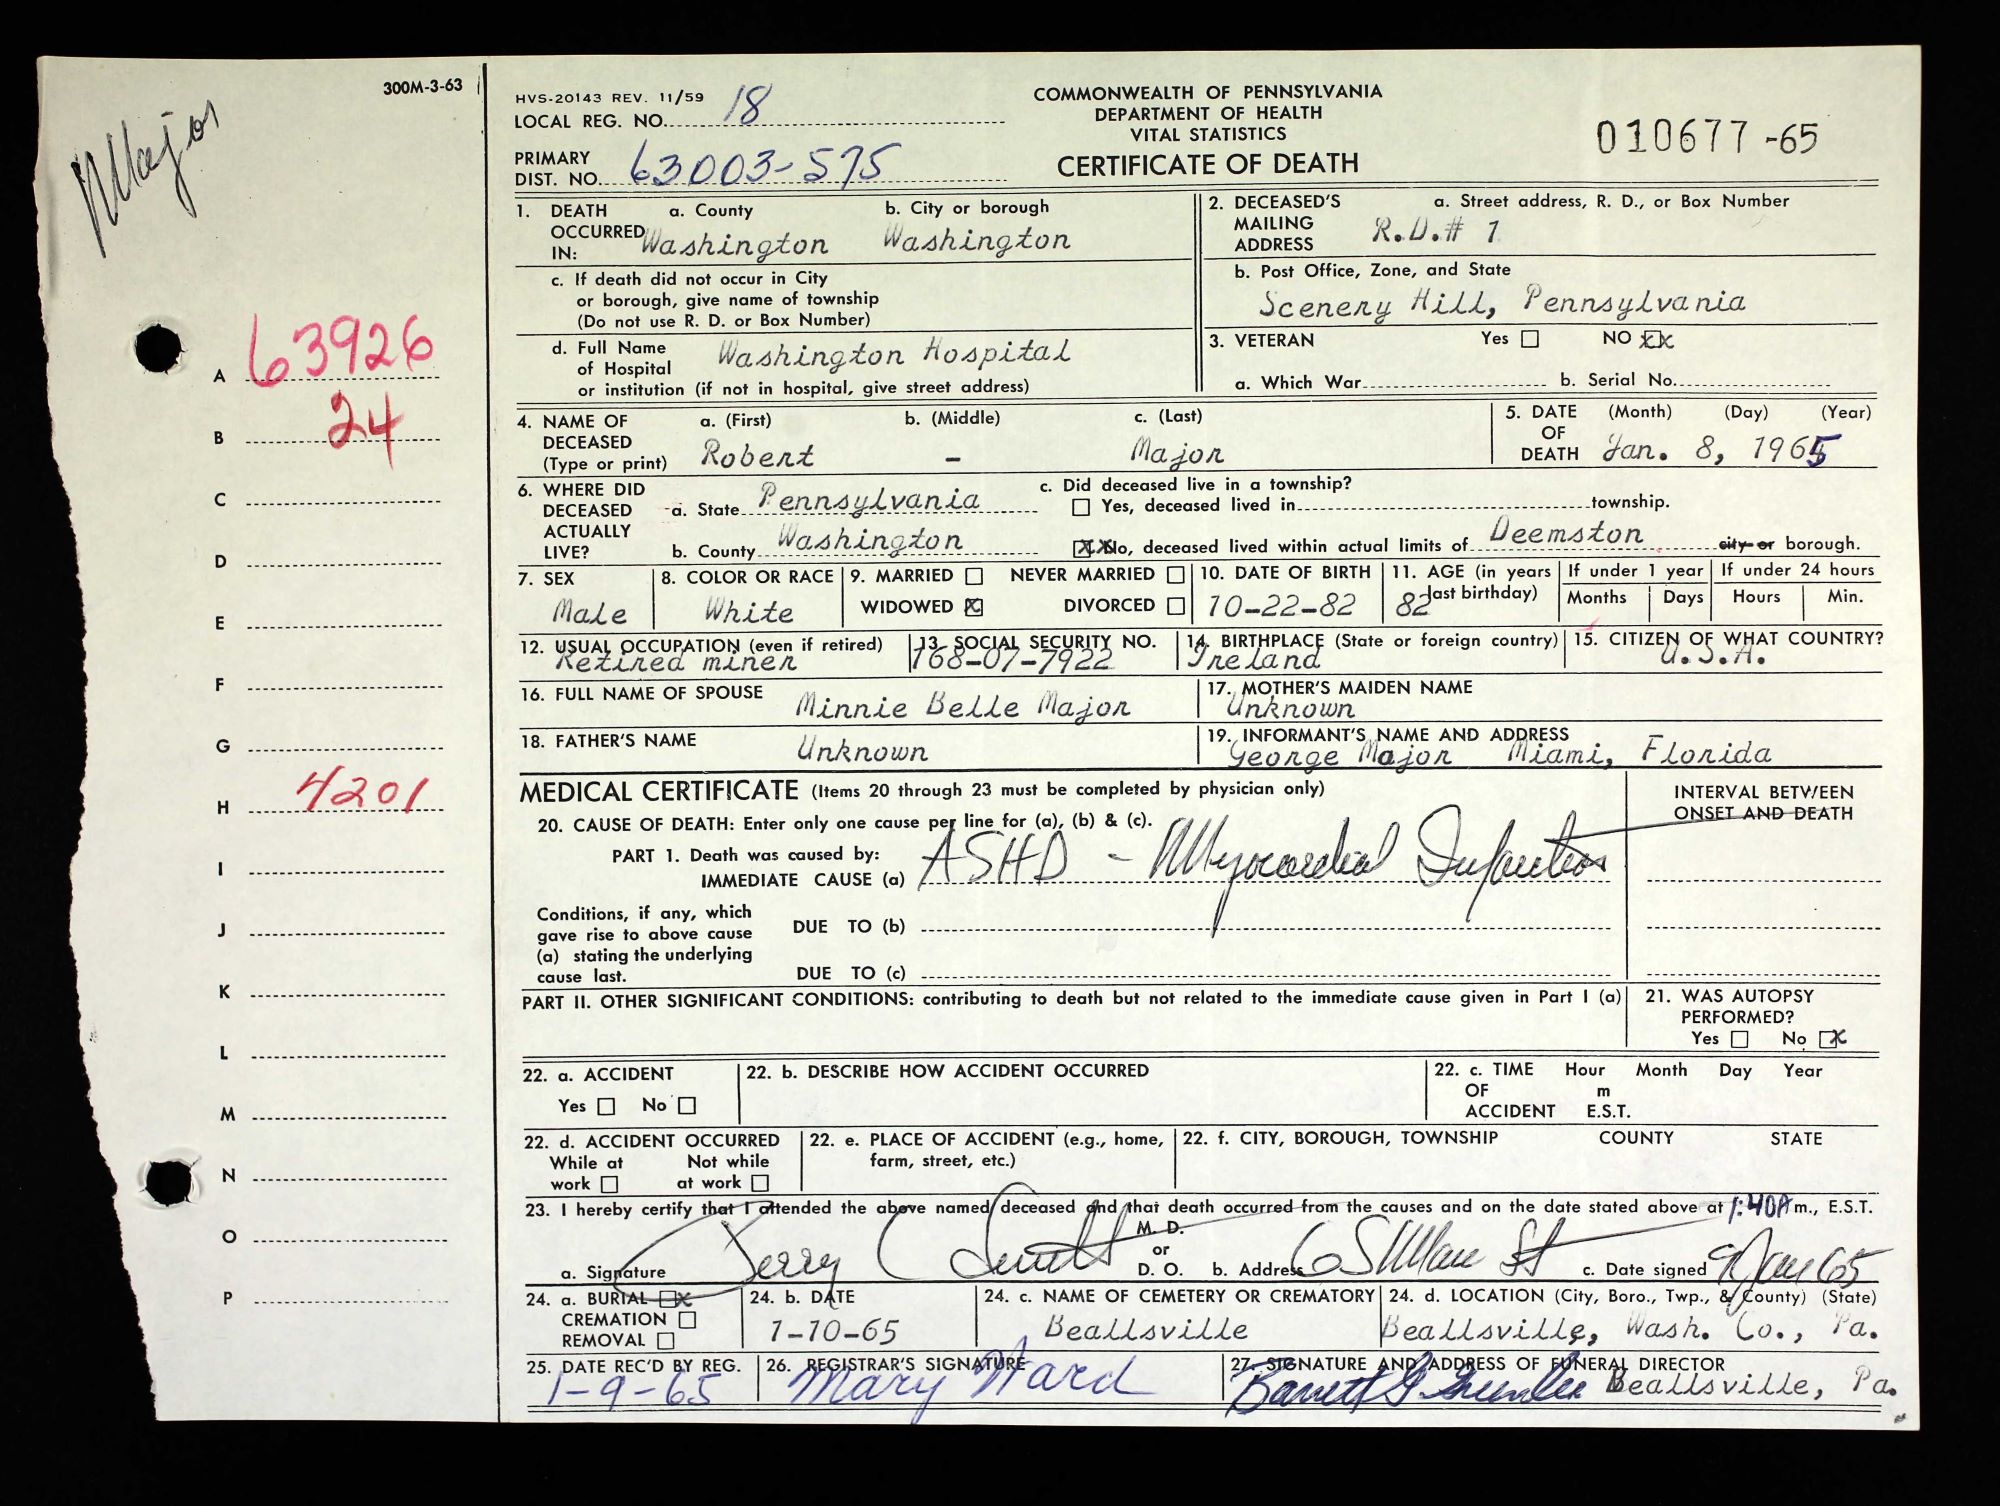 Major
300M-3-63
HVS-20143 REV. 11/59
LOCAL REG. NO. 18
COMMONWEALTH OF PENNSYLVANIA
DEPARTMENT OF HEALTH
VITAL STATISTICS
CERTIFICATE OF DEATH
010677-65
PRIMARY
DIST. NO. 63003-575
1. DEATH OCCURRED IN: a. County b. City or borough
Washington Washington
c. If death did not occur in City
or borough, give name of township
(Do not use R. D. or Box Number)
d. Full Name
of Hospital Washington Hospital
or institution (if not in hospital, give street address)
2. DECEASED'S MAILING ADDRESS a. Street address, R. D., or Box Number
R.D.# 1
b. Post Office, Zone, and State
Scenery Hill, Pennsylvania
3. VETERAN Yes NO XX
a. Which War b. Serial No.
4. NAME OF DECEASED (Type or print) a. (First) b. (Middle) c. (Last)
Robert - Major
5. DATE OF DEATH (Month) (Day) (Year)
Jan. 8, 1965
6. WHERE DID DECEASED ACTUALLY LIVE?
a. State Pennsylvania
b. County Washington
c. Did deceased live in a township?
Yes, deceased lived in township.
XX No, deceased lived within actual limits of Deemston city or borough.
7. SEX
Male
8. COLOR OR RACE
White
9. MARRIED NEVER MARRIED
WIDOWED X DIVORCED
10. DATE OF BIRTH
10-22-82
11. AGE (in years last birthday)
82
If under 1 year
Months Days
If under 24 hours
Hours Min.
12. USUAL OCCUPATION (even if retired)
Retired miner
13. SOCIAL SECURITY NO.
168-07-7922
14. BIRTHPLACE (State or foreign country)
Ireland
15. CITIZEN OF WHAT COUNTRY?
U.S.A.
16. FULL NAME OF SPOUSE
Minnie Belle Major
17. MOTHER'S MAIDEN NAME
Unknown
18. FATHER'S NAME
Unknown
19. INFORMANT'S NAME AND ADDRESS
George Major Miami, Florida
MEDICAL CERTIFICATE (Items 20 through 23 must be completed by physician only)
INTERVAL BETWEEN
ONSET AND DEATH
20. CAUSE OF DEATH: Enter only one cause per line for (a), (b) & (c).
PART 1. Death was caused by:
IMMEDIATE CAUSE (a) ASHD - Myocardial Infarction
Conditions, if any, which
gave rise to above cause
(a) stating the underlying
cause last.
DUE TO (b)
DUE TO (c)
PART II. OTHER SIGNIFICANT CONDITIONS: contributing to death but not related to the immediate cause given in Part I (a)
21. WAS AUTOPSY
PERFORMED?
Yes No X
22. a. ACCIDENT
Yes No
22. b. DESCRIBE HOW ACCIDENT OCCURRED
22. c. TIME OF ACCIDENT Hour Month Day Year
m
E.S.T.
22. d. ACCIDENT OCCURRED
While at work Not while at work
22. e. PLACE OF ACCIDENT (e.g., home,
farm, street, etc.)
22. f. CITY, BOROUGH, TOWNSHIP COUNTY STATE
23. I hereby certify that I attended the above named deceased and that death occurred from the causes and on the date stated above at 1:40A m., E.S.T.
a. Signature Jerry C
M. D.
or
D. O.
b. Address St
c. Date signed 9 Jan 65
24. a. BURIAL X
CREMATION
REMOVAL
24. b. DATE
1-10-65
24. c. NAME OF CEMETERY OR CREMATORY
Beallsville
24. d. LOCATION (City, Boro., Twp., & County) (State)
Beallsville, Wash. Co., Pa.
25. DATE REC'D BY REG.
1-9-65
26. REGISTRAR'S SIGNATURE
Mary Ward
27. SIGNATURE AND ADDRESS OF FUNERAL DIRECTOR
Beallsville, Pa.
A 63926
B 24
C
D
E
F
G
H 4201
I
J
K
L
M
N
O
P